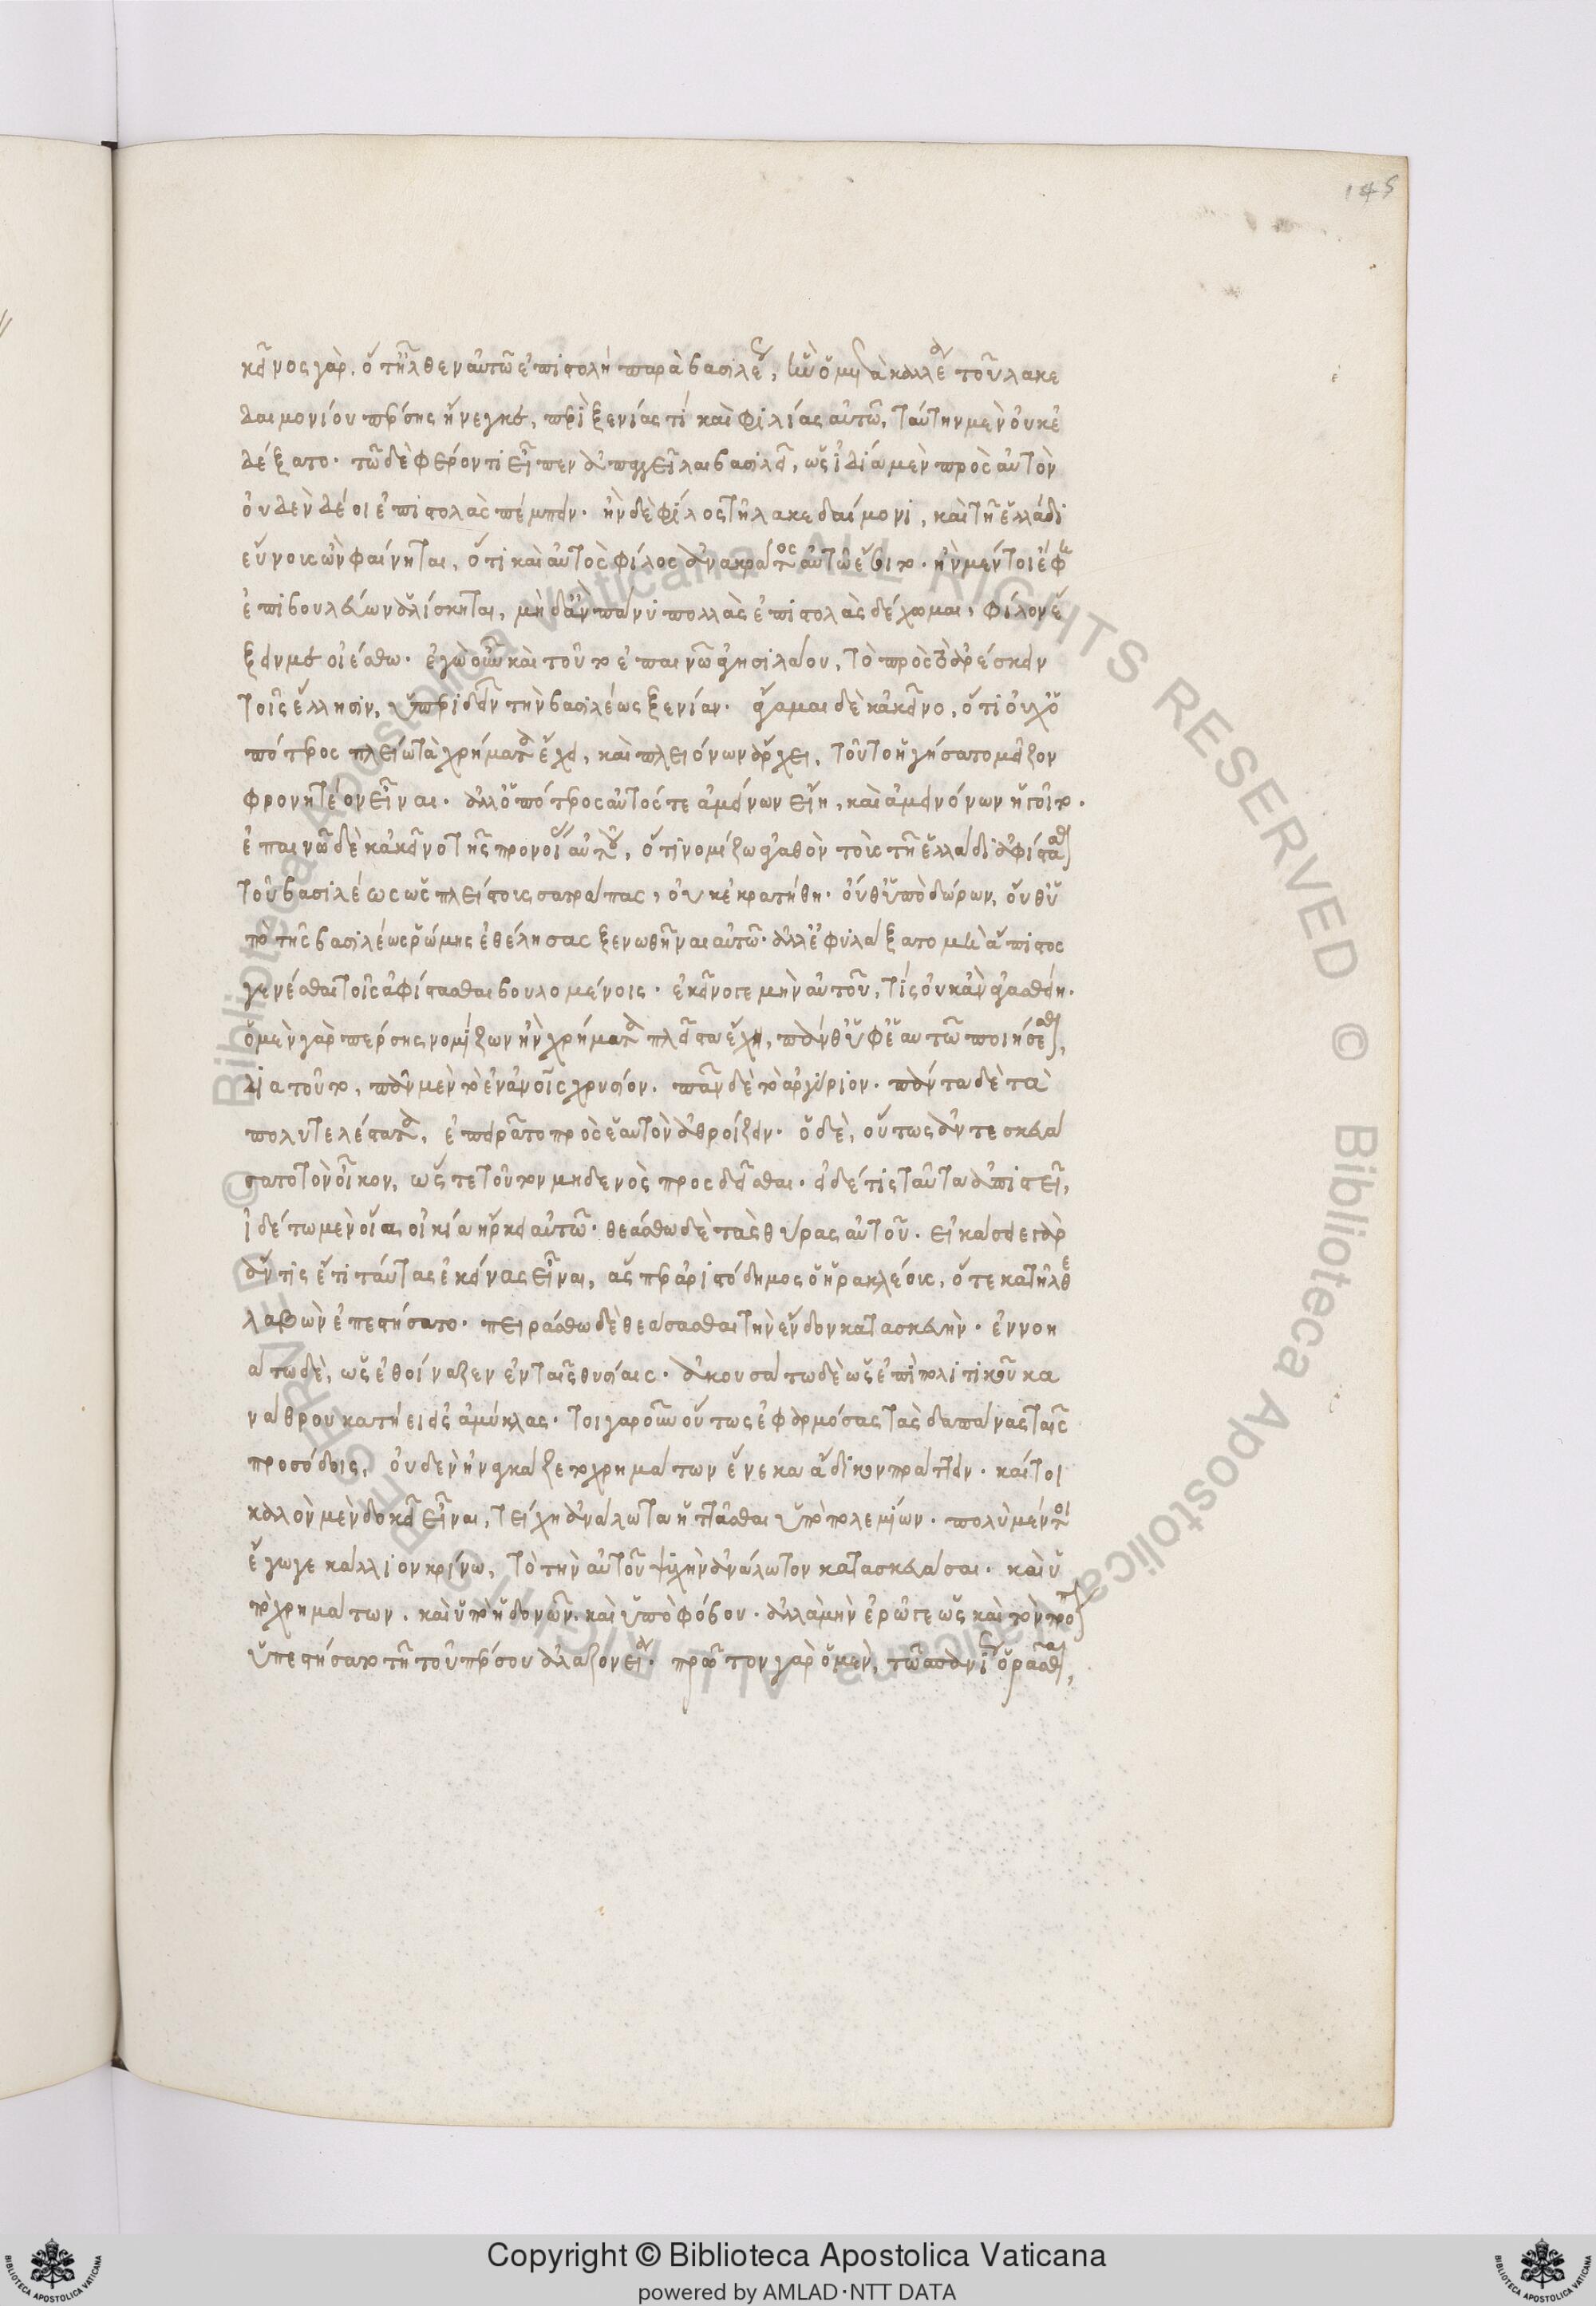 145
κεῖνος γὰρ. ὅτ' ἦλθεν αὐτῶ ἐπιστολὴ παρὰ βασιλέως, ἣν ὁ μετὰ καλλέα τοῦ λακε
δαιμονίου πέρσης ἤνεγκε, περὶ ξενίας τὲ καὶ φιλίας αὐτῶ, ταύτην μὲν οὐκ ἐ
δέξατο· τῶ δὲ φέροντι εἶπεν ἀπαγγεῖλαι βασιλεῖ, ὡς ἰδία μὲν πρὸς αὐτὸν
οὐδὲν δέοι ἐπιστολὰς πέμπειν· ἢν δὲ φίλος τῆ λακεδαίμονι, καὶ τῆ ἑλλάδι
εὔνοις ὢν φαίνηται, ὅτι καὶ αὐτὸς φίλος ἀνακράτος αὐτῶ ἔσοιτο· ἢν μέντοι ἔφη
ἐπιβουλεύων ἁλίσκηται, μηδ' ἂν πάνυ πολλὰς ἐπιστολὰς δέχωμαι, φίλον ἕ
ξειν με οἰέσθω· ἐγὼ οὖν καὶ τοῦτο ἐπαινῶ ἀγησιλάου, τὸ πρὸς τὸ ἀρέσκειν
τοῖς ἕλλησιν, ὑπεριδεῖν τὴν βασιλέως ξενίαν· ἄγαμαι δὲ κἀκεῖνο, ὅτι οὐχ ὁ
πότερος πλείω τὰ χρήματα ἔχει, καὶ πλειόνων ἄρχει, τοῦτο ἡγήσατο μεῖζον
φρονητέον εἶναι· ἀλλ' ὁπότερος αὐτός τε ἀμείνων εἴη, καὶ ἀμεινόνων ἡγοῖτο.
ἐπαινῶ δὲ κἀκεῖνο τῆς προνοίας αὐτοῦ, ὅτι νομίζω ἀγαθὸν τοῖς τῆ ἑλλάδι ἀφίστασθαι
τοῦ βασιλέως ὡς πλείστους σατράπας, οὐκ ἐκρατήθη· οὔθ' ὑπὸ δώρων, οὔθ' ὑ
πὸ τῆς βασιλέως ῥώμης ἐθέλησας ξενωθῆναι αὐτῶ· ἀλλ' ἐφυλάξατο μὴ ἄπιστος
γενέσθαι τοῖς ἀφίστασθαι βουλομένοις· ἐκεῖνό γε μὴν αὐτοῦ, τίς οὐκ ἂν ἀγασθείη.
ὁ μὲν γὰρ πέρσης νομίζων ἢν χρήματα πλεῖστα ἔχη, πάνθ' ὑφ' ἑαυτῶ ποιήσεσθαι,
διὰ τοῦτο, πᾶν μὲν τὸ ἐν ἀνοῖς χρυσίον. πᾶν δὲ τὸ ἀργύριον. πάντα δὲ τὰ
πολυτελέστατα, ἐπειρᾶτο πρὸς ἑαυτὸν ἀθροίζειν· ὁ δὲ, οὕτως ἀντεσκευά
σατο τὸν οἶκον, ὥστε τούτων μηδενὸς προσδεῖσθαι· εἰ δέ τις ταῦτα ἀπιστεῖ,
ἰδέτω μὲν οἵα οἰκία ἤρκει αὐτῶ· θεάσθω δὲ τὰς θύρας αὐτοῦ. εἰκάσειε γὰρ
ἄν τις ἔτι ταύτας ἐκείνας εἶναι, ἃς περ ἀριστόδημος ὁ ἡρακλέοις, ὅτε κατῆλθε
λαβὼν ἐπεστήσατο· πειράσθω δὲ θεάσασθαι τὴν ἔνδον κατασκευὴν· ἐννοη
σάτω δὲ, ὡς ἐθοίναζεν ἐν ταῖς θυσίαις· ἀκουσάτω δὲ ὡς ἐπὶ πολιτικοῦ κα
νάθρου κατήει εἰς ἀμύκλας· τοιγαροῦν οὕτως ἐφαρμόσας τὰς δαπάνας ταῖς
προσόδοις, οὐδὲν ἠναγκάζετο χρημάτων ἕνεκα ἄδικον πράττειν· καίτοι
καλὸν μὲν δοκεῖ εἶναι, τείχη ἀνάλωτα ἡττᾶσθαι ὑπὸ πολεμίων. πολὺ μέντοι
ἔγωγε κάλλιον κρίνω, τὸ τὴν αὐτοῦ ψυχὴν ἀνάλωτον κατασκευάσαι· καὶ ὑ
πὸ χρημάτων. καὶ ὑπὸ ἡδονῶν. καὶ ὑπὸ φόβου· ἀλλὰ μὴν ἐρῶ γε ὡς καὶ τὸν τρόπον
ὑπεστήσατο τῆ τοῦ πέρσου ἀλαζονεία· πρῶτον γὰρ ὁ μὲν, τῶ σπανίως ὁρᾶσθαι,
Copyright © Biblioteca Apostolica Vaticana
powered by AMLAD·NTT DATA